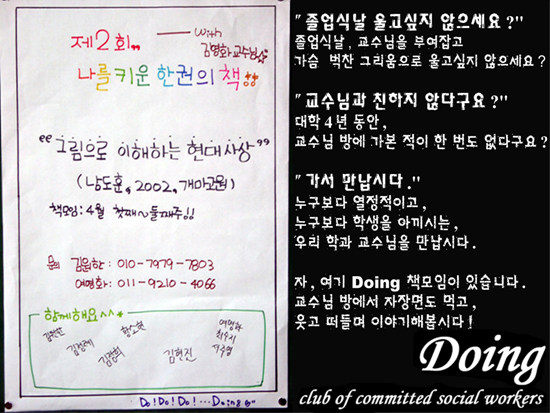 제2회"" with
김영화교수님
나를키운 한권의 책!!
"그림으로 이해하는 현대사상"
(남도훈, 2002, 개마고원)
책모임:4월 첫째~둘째주!!
문의 김원한: 010-7979-7803
여영화: 011-9210-4066
함께해요^^*
김경희
김현진
Do! Do! Do!
" 졸업식날 울고싶지 않으세요 ?"
졸업식날, 교수님을 부여잡고
가슴 벅찬 그리움으로 울고싶지 않으세요 ?
" 교수님과 친하지 않다구요 ?"
대학 4년 동안,
교수님 방에 가본 적이 한 번도 없다구요 ?
" 가서 만납시다 . "
누구보다 열정적이고 ,
누구보다 학생을 아끼시는 ,
우리 학과 교수님을 만납시다 .
자 , 여기 Doing 책모임이 있습니다 .
교수님 방에서 자장면도 먹고 ,
웃고 떠들며 이야기해봅시다 !
Doing
club of committed social workers